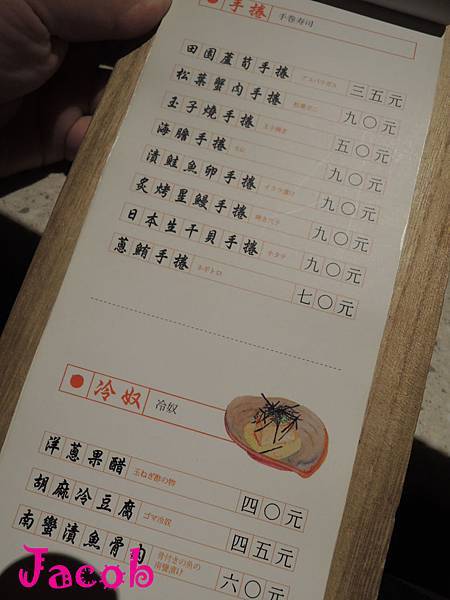 手捲 手卷寿司
田園蘆筍手捲 アスパラガス 三五元
松葉蟹肉手捲 松葉ガニ 九〇元
玉子燒手捲 玉子焼き 五〇元
海膽手捲 うに 九〇元
漬鮭魚卵手捲 イクラ漬け 九〇元
炙烤星鰻手捲 焼き穴子 九〇元
日本生干貝手捲 ホタテ 九〇元
蔥鮪手捲 ネギトロ 七〇元
冷奴 冷奴
洋蔥果醋 玉ねぎ酢の物 四〇元
胡麻冷豆腐 ゴマ冷奴 四五元
南蠻漬魚骨肉 骨付きの魚の南蛮漬け 六〇元
Jacob